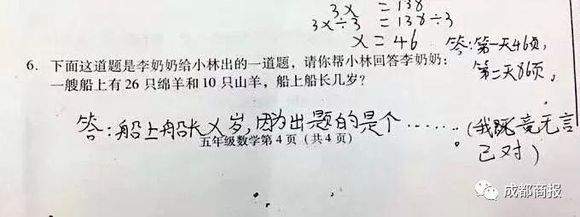 3x = 138
3x÷3 = 138÷3
x = 46
答:第一天46页,
第二天86页。
6. 下面这道题是李奶奶给小林出的一道题，请你帮小林回答李奶奶:
一艘船上有 26 只绵羊和 10 只山羊，船上船长几岁?
答:船上船长X岁,因为出题的是个……。(我既竟无言
已对)
五年级数学第 4 页 (共 4 页)
成都商报